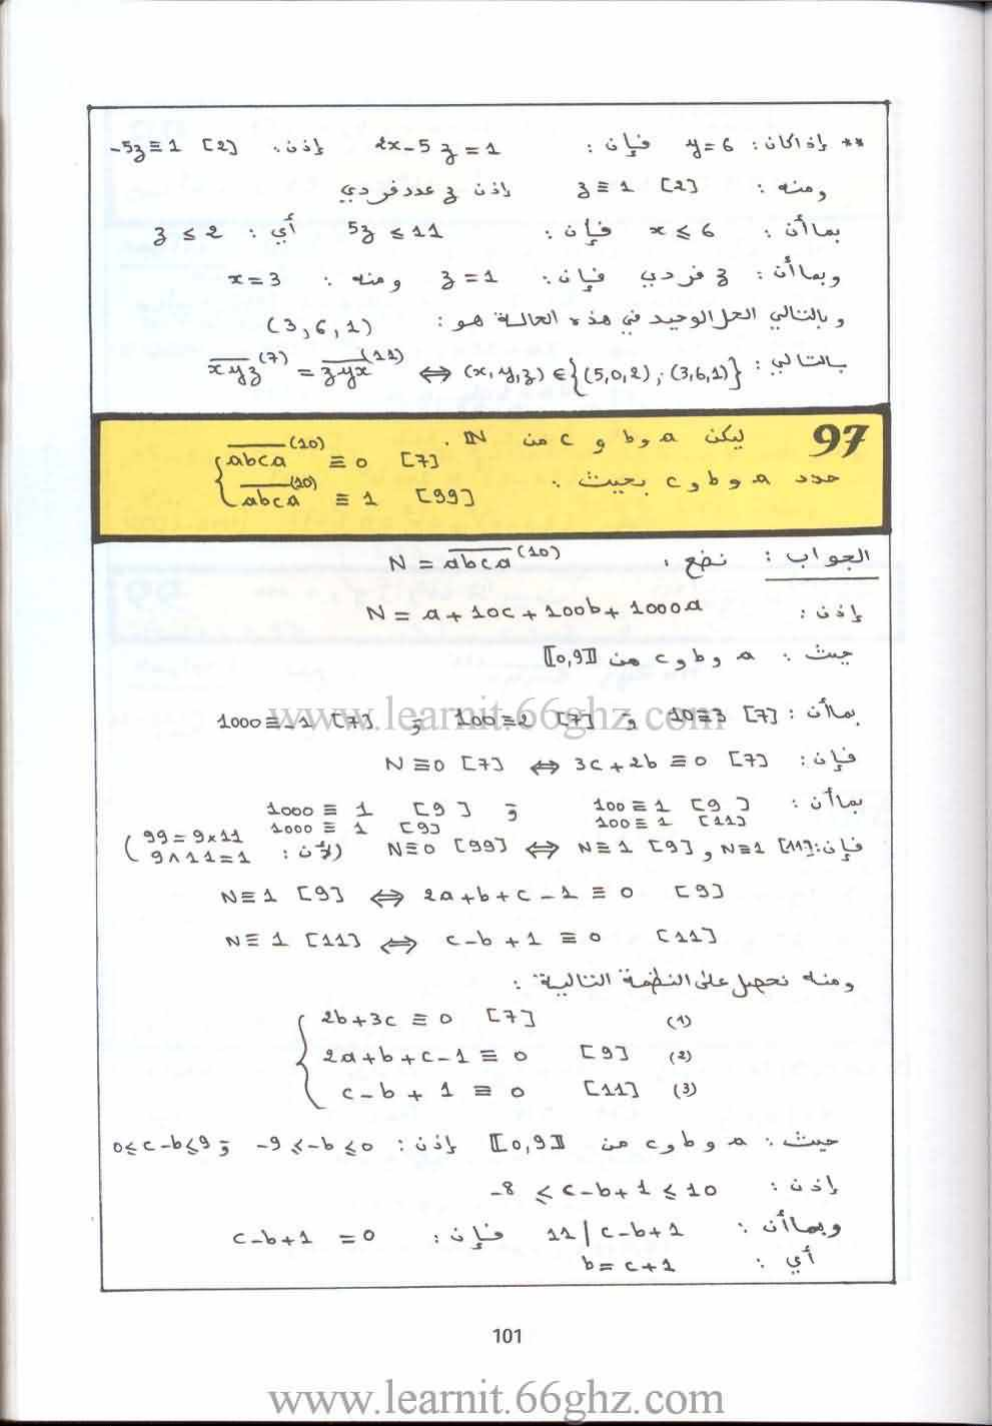 ** إذا كان : y=6 فإن : 2x-5z=1 إذن : -5z≡1 [2]
ومنه : z≡1 [2] إذن z عدد فردي
بما أن : x≤6 فإن : 5z≤11 أي : z≤2
وبما أن : z فردي فإن : z=1 ومنه : x=3
وبالتالي الحل الوحيد في هذه الحالة هو : (3,6,1)
بالتالي : \overline{xyz}^{(7)} = \overline{zyx}^{(11)} ⇔ (x,y,z)∈{(5,0,2);(3,6,1)}
97 ليكن a و b و c من ℕ .
حدد a و b و c بحيث : { \overline{abca}^{(10)} ≡ 0 [7]
\overline{abca}^{(10)} ≡ 1 [99]
الجواب : نضع : N = \overline{abca}^{(10)}
إذن : N = a+10c+100b+1000a
حيث : a و b و c من ⟦0,9⟧
بما أن : 10≡3 [7] و 100≡2 [7] و 1000≡-1 [7]
فإن : N≡0 [7] ⇔ 3c+2b≡0 [7]
بما أن : 100≡1 [9] و 1000≡1 [9]
100≡1 [11] 1000≡1 [9]
فإن : N≡1 [11] و N≡1 [9] ⇔ N≡0 [99] (لأن : 99=9×11
9∧11=1
N≡1 [9] ⇔ 2a+b+c-1≡0 [9]
N≡1 [11] ⇔ c-b+1≡0 [11]
ومنه نحصل على النظمة التالية :
{ 2b+3c≡0 [7] (1)
2a+b+c-1≡0 [9] (2)
c-b+1≡0 [11] (3)
حيث : a و b و c من ⟦0,9⟧ إذن : -9≤-b≤0 و 0≤c-b≤9
إذن : -8≤c-b+1≤10
وبما أن : 11|c-b+1 فإن : c-b+1=0
أي : b=c+1
101
www.learnit.66ghz.com
www.learnit.66ghz.com